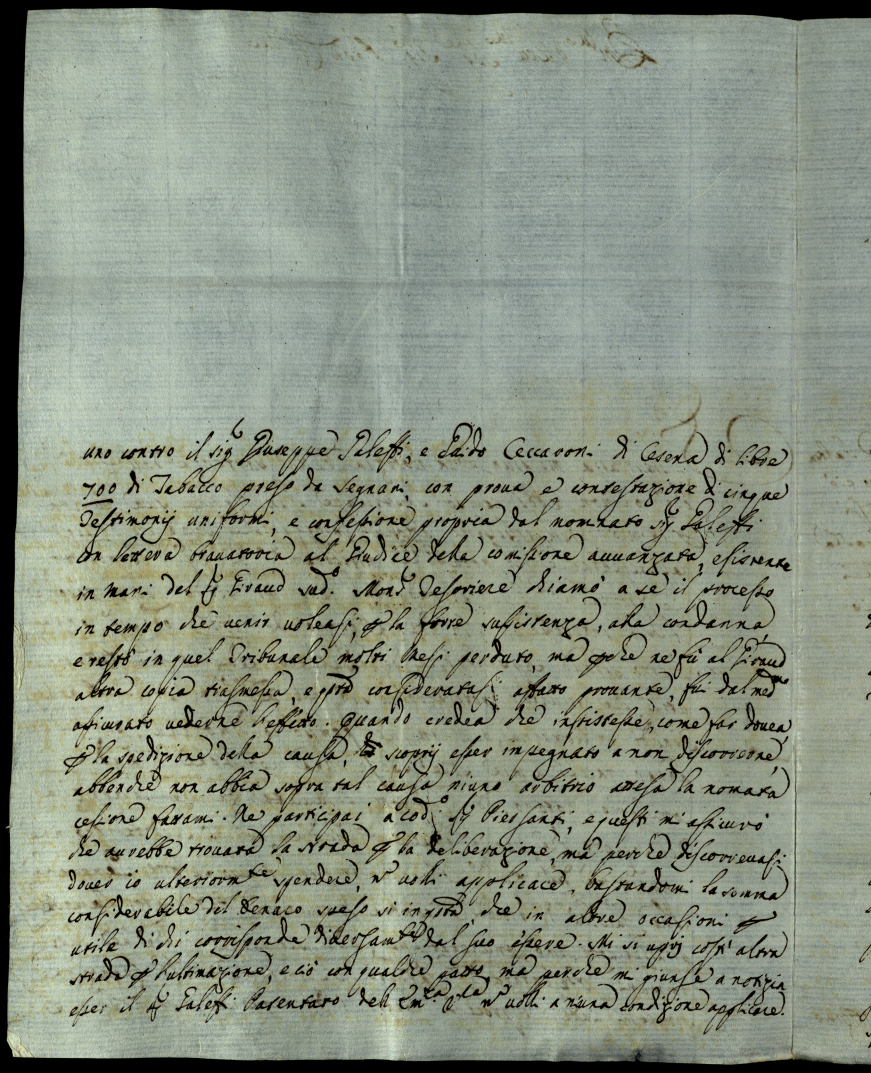 uno contro il sig.r Giuseppe Galeffi, e Guido Ceccaroni di Cesena di libre
700 di Tabacco preso da Segnani, con prova e contestazione di cinque
Testimonij uniformi, e confessione propria dal nominato Sig. Galeffi
con lettera bravatoria al Giudice della comisione avvanzata, esistente
in mani del Sig. Giraud sud.o Mons.r Tesoriere chiamò a sè il processo
in tempo che venir voleasi, p la forte sussistenza, alla condanna,
e restò in quel Tribunale molti mesi perduto, ma pche ne fù al Giraud
altra copia trasmessa, e consideratasi affatto provante, fui dal med.mo
assicurato vederne l'effetto. Quando credea che insistesse, come far dovea,
p la spedizione della causa, scoprij esser impegnato a non discorrerne,
abbenche non abbia sopra tal causa niuno arbitrio attesa la nomata
cessione fatami. Ne participai a cod.o Sig. Piersanti, e questi mi assicurò
che avrebbe trovata la strada p la deliberazione, ma perche discorrevasi
dover io ulteriorm.te spendere, n volli applicare, bastandomi la somma
considerabile del denaro speso si in, che in altre occasioni p
utile di chi corrisponde diversam.te dal suo essere. Mi si aprij cossì altra
strada p l'ultimazione, e ciò con qualche patto, ma perche mi giunse a notizia
esser il Sig. Galeffi Parentato dell' n volli a niuna condizione applicare.